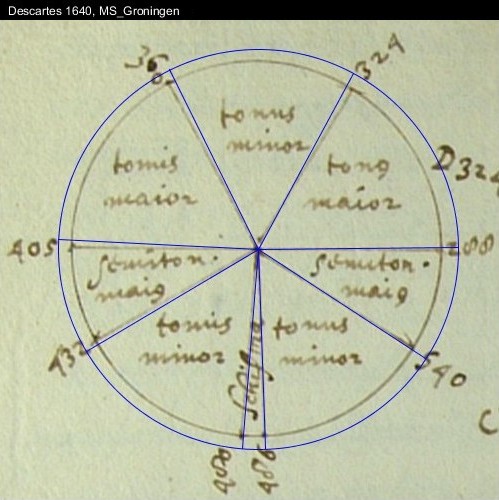 Descartes 1640, MS_Groningen
360
324
tonus
minor
tonus
maior
ton9
maior
D 324
405
288
semiton.
mai9
semiton.
mai9
tonus
minor
tonus
minor
schisma
432
540
480
486
C